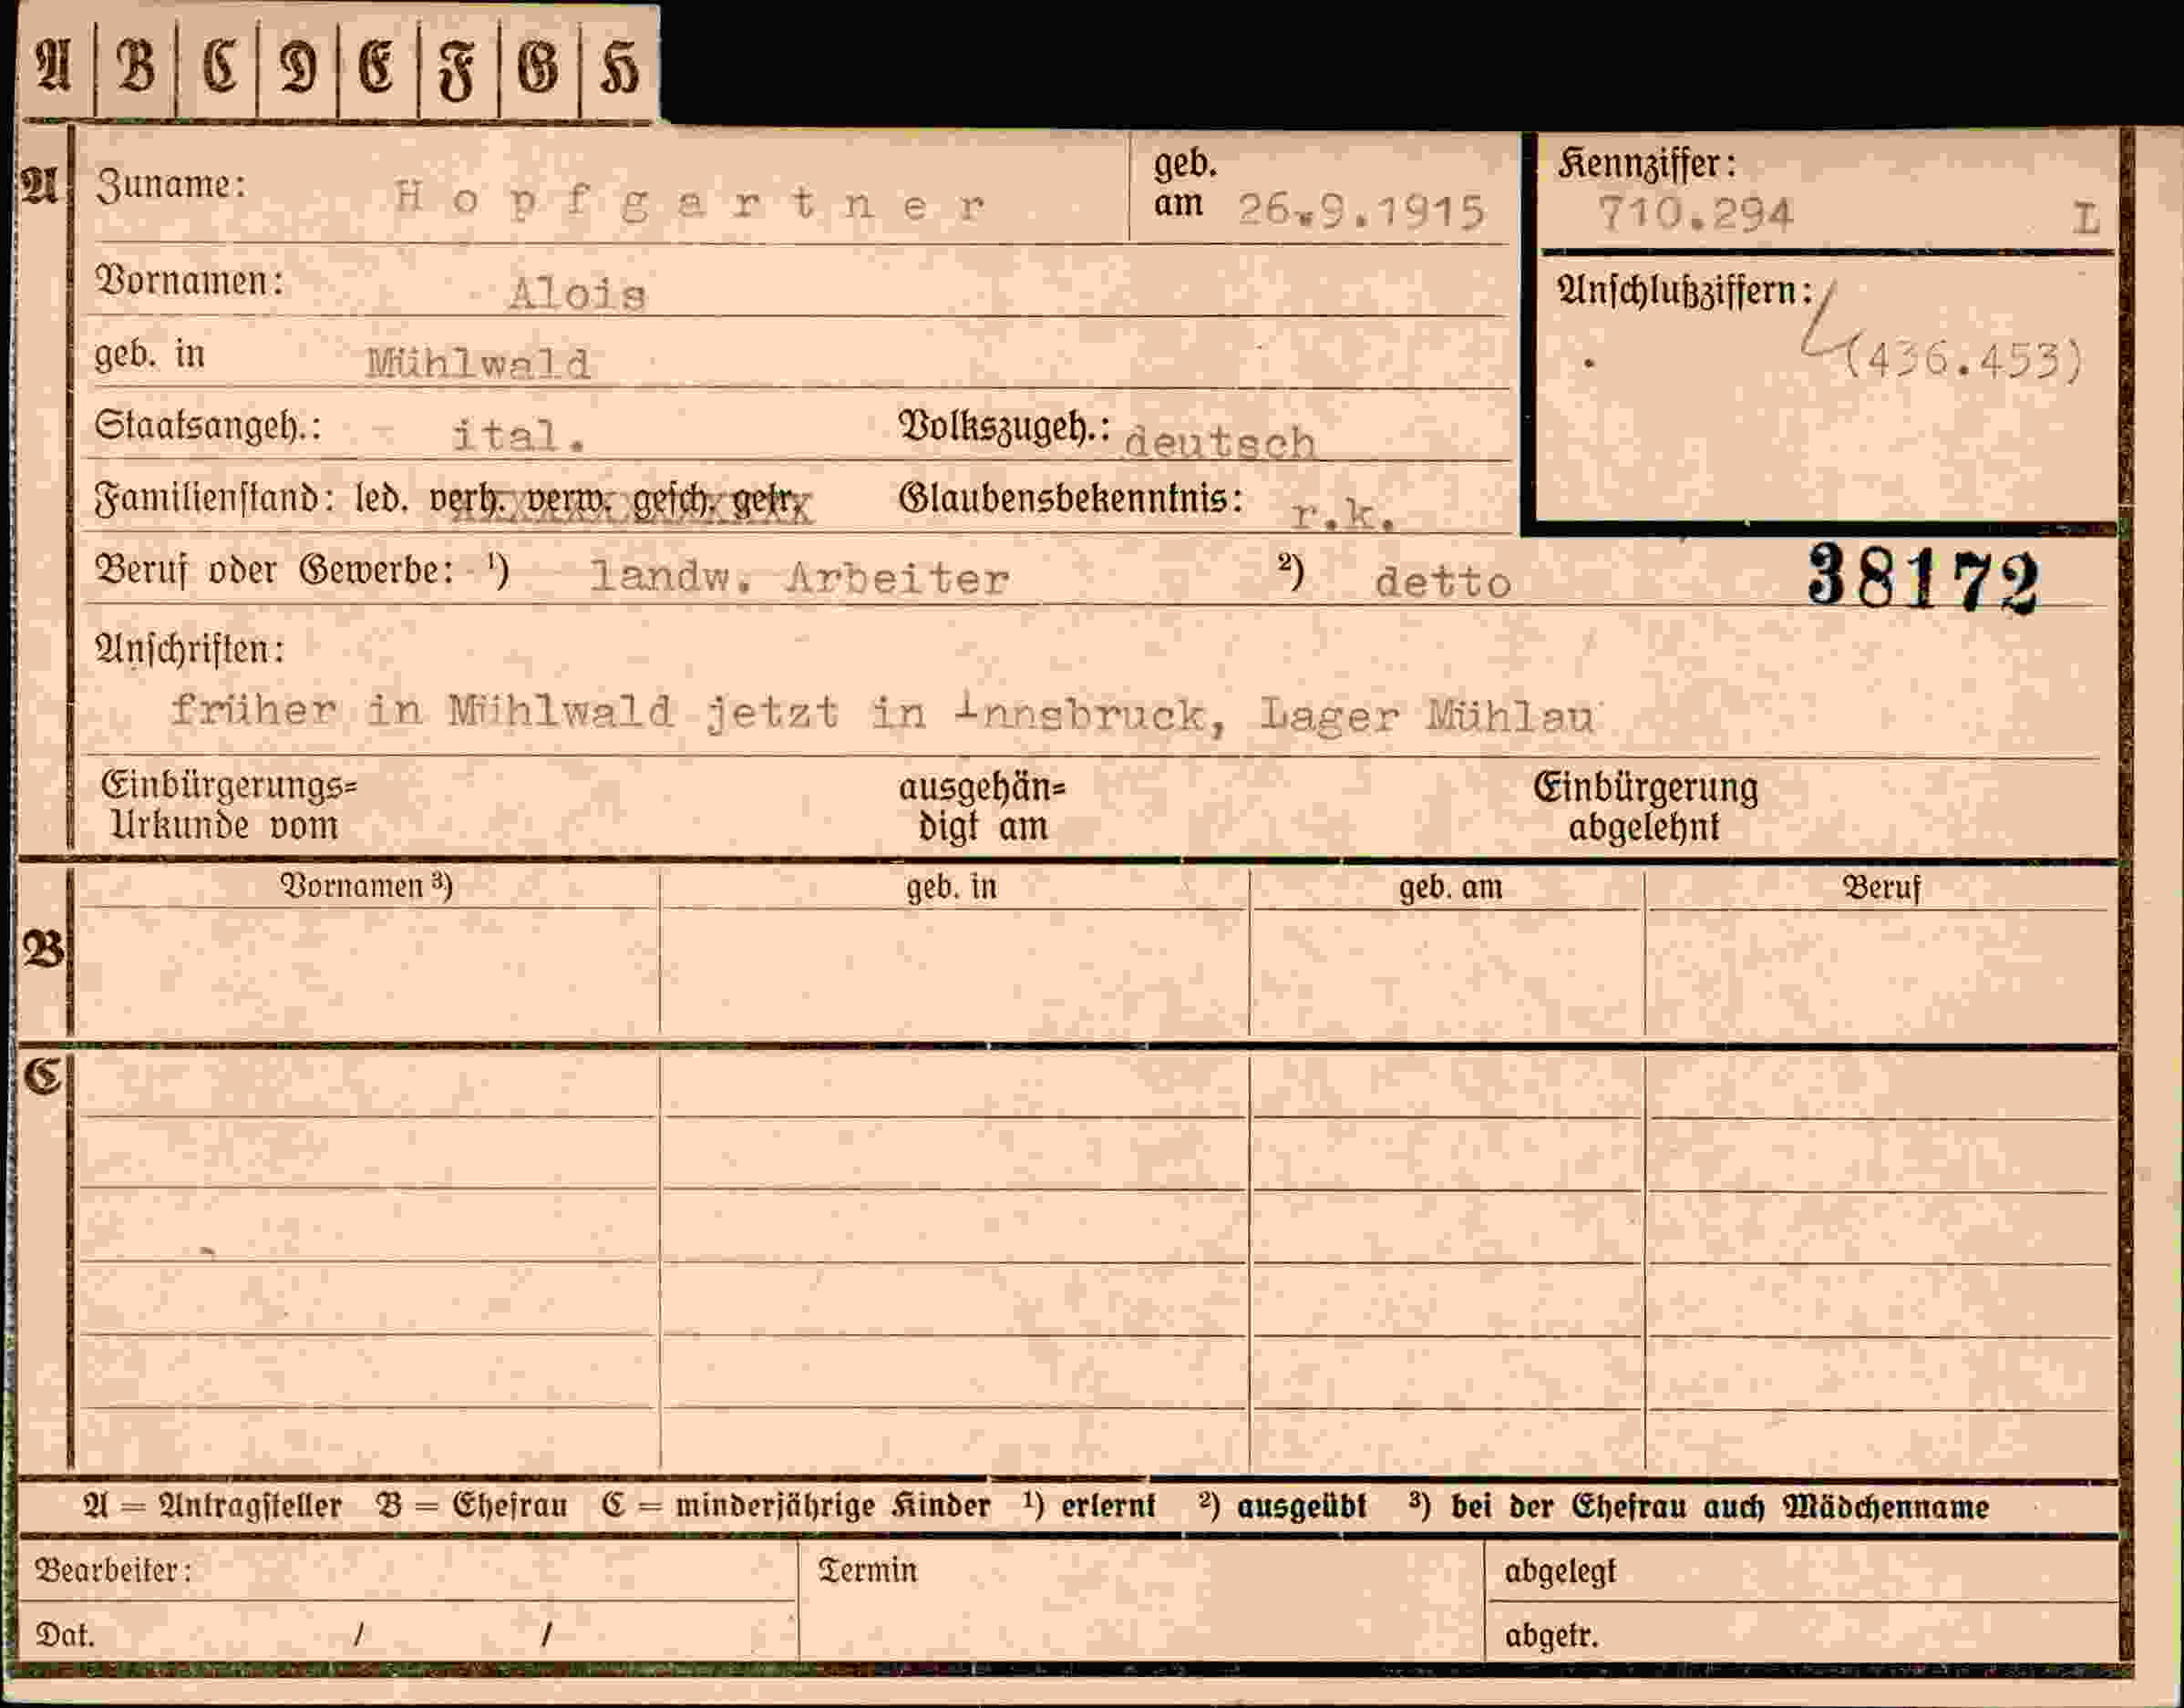 A B C D E F G H
A Zuname: Hopfgartner geb. am 26.9.1915 Kennziffer: 710.294 L
Vornamen: Alois Anschlußziffern: (436.453)
geb. in Mühlwald
Staatsangeh.: ital. Volkszugeh.: deutsch
Familienstand: led. verh. verw. gesch. getr. Glaubensbekenntnis: r.k.
Beruf oder Gewerbe: ¹) landw. Arbeiter ²) detto 38172
Anschriften:
früher in Mühlwald jetzt in Innsbruck, Lager Mühlau
Einbürgerungs= ausgehän= Einbürgerung
Urkunde vom digt am abgelehnt
Vornamen ³) geb. in geb. am Beruf
B
C
A = Antragsteller B = Ehefrau C = minderjährige Kinder ¹) erlernt ²) ausgeübt ³) bei der Ehefrau auch Mädchenname
Bearbeiter: Termin abgelegt
Dat. / / abgetr.